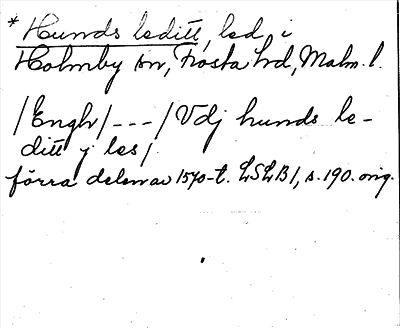 * Hunds leditt, led i
Holmby sn, Frosta hd, Malm. l.
/Engh/ - - - / Vdj hunds le-
ditt j les/
förra delen av 1570-t. LSLB I, s. 190. orig.